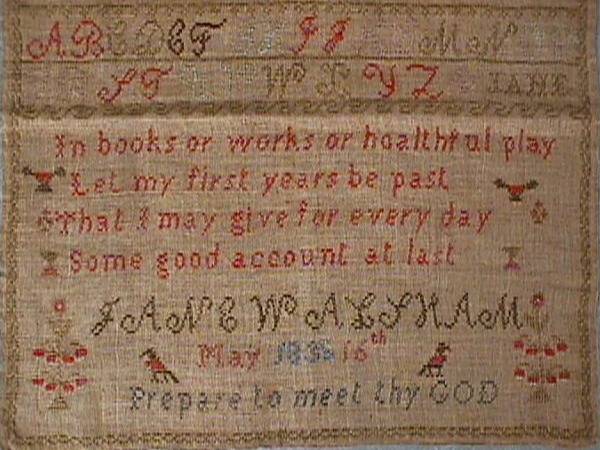 A B C D E F I J M N
S T W X Y Z JANE
In books or works or healthful play
Let my first years be past
That I may give for every day
Some good account at last
JANE WALSHAM
May 16th
Prepare to meet thy GOD